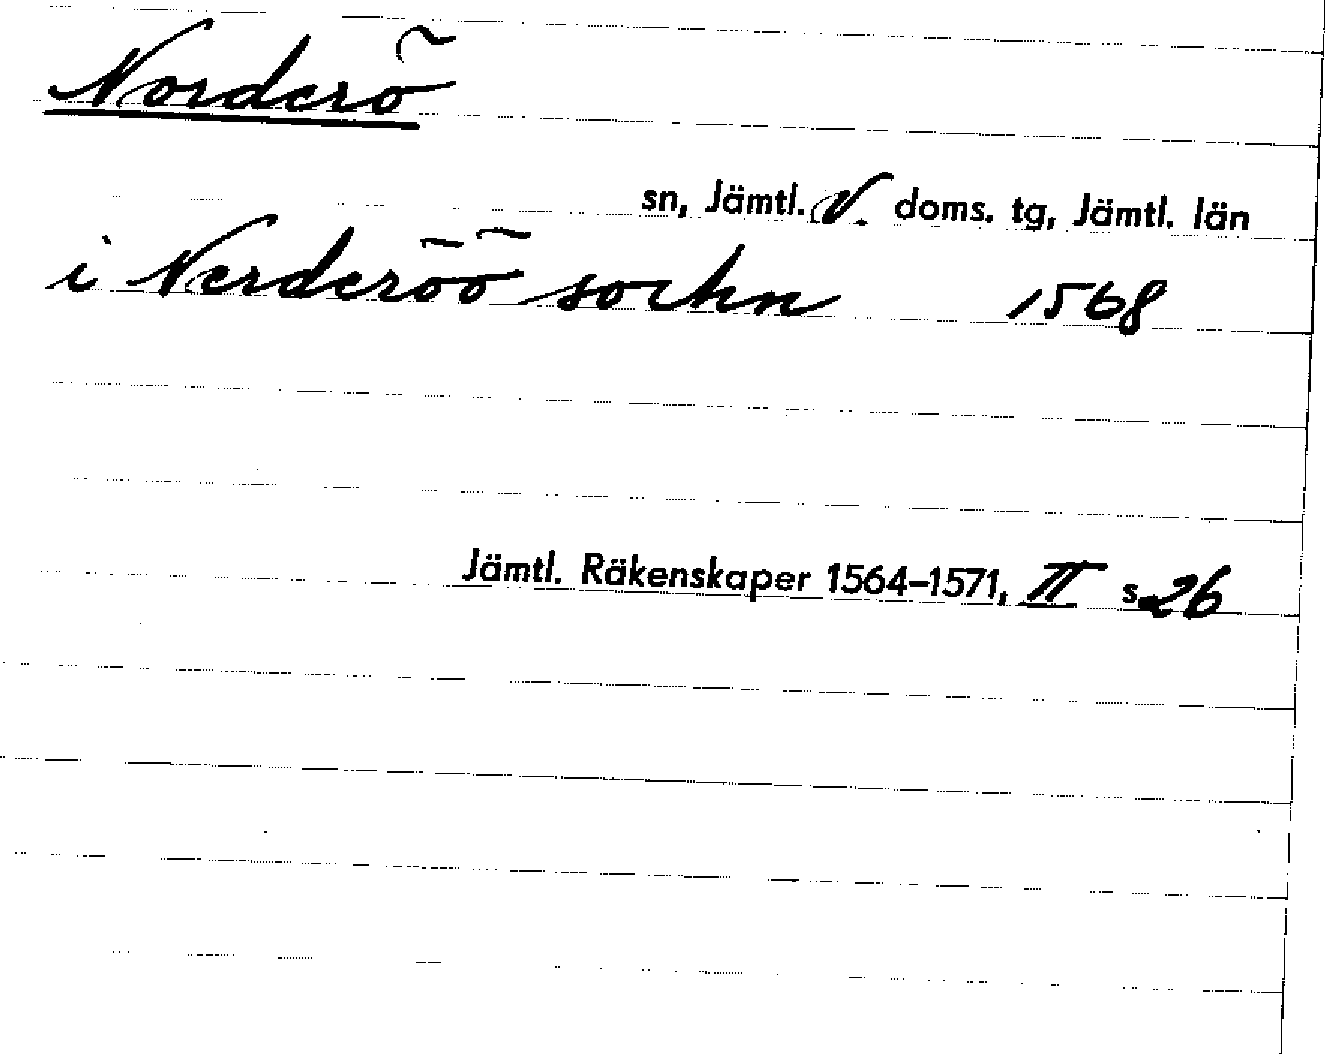 Norderö
sn, Jämtl. V. doms. tg, Jämtl. län
i Nerderöö sochn 1568
Jämtl. Räkenskaper 1564–1571, II s 26